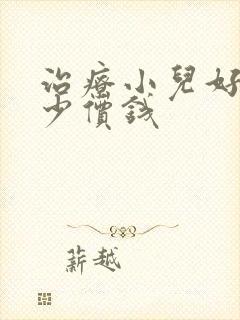 治療小兒好
少價錢
薪越